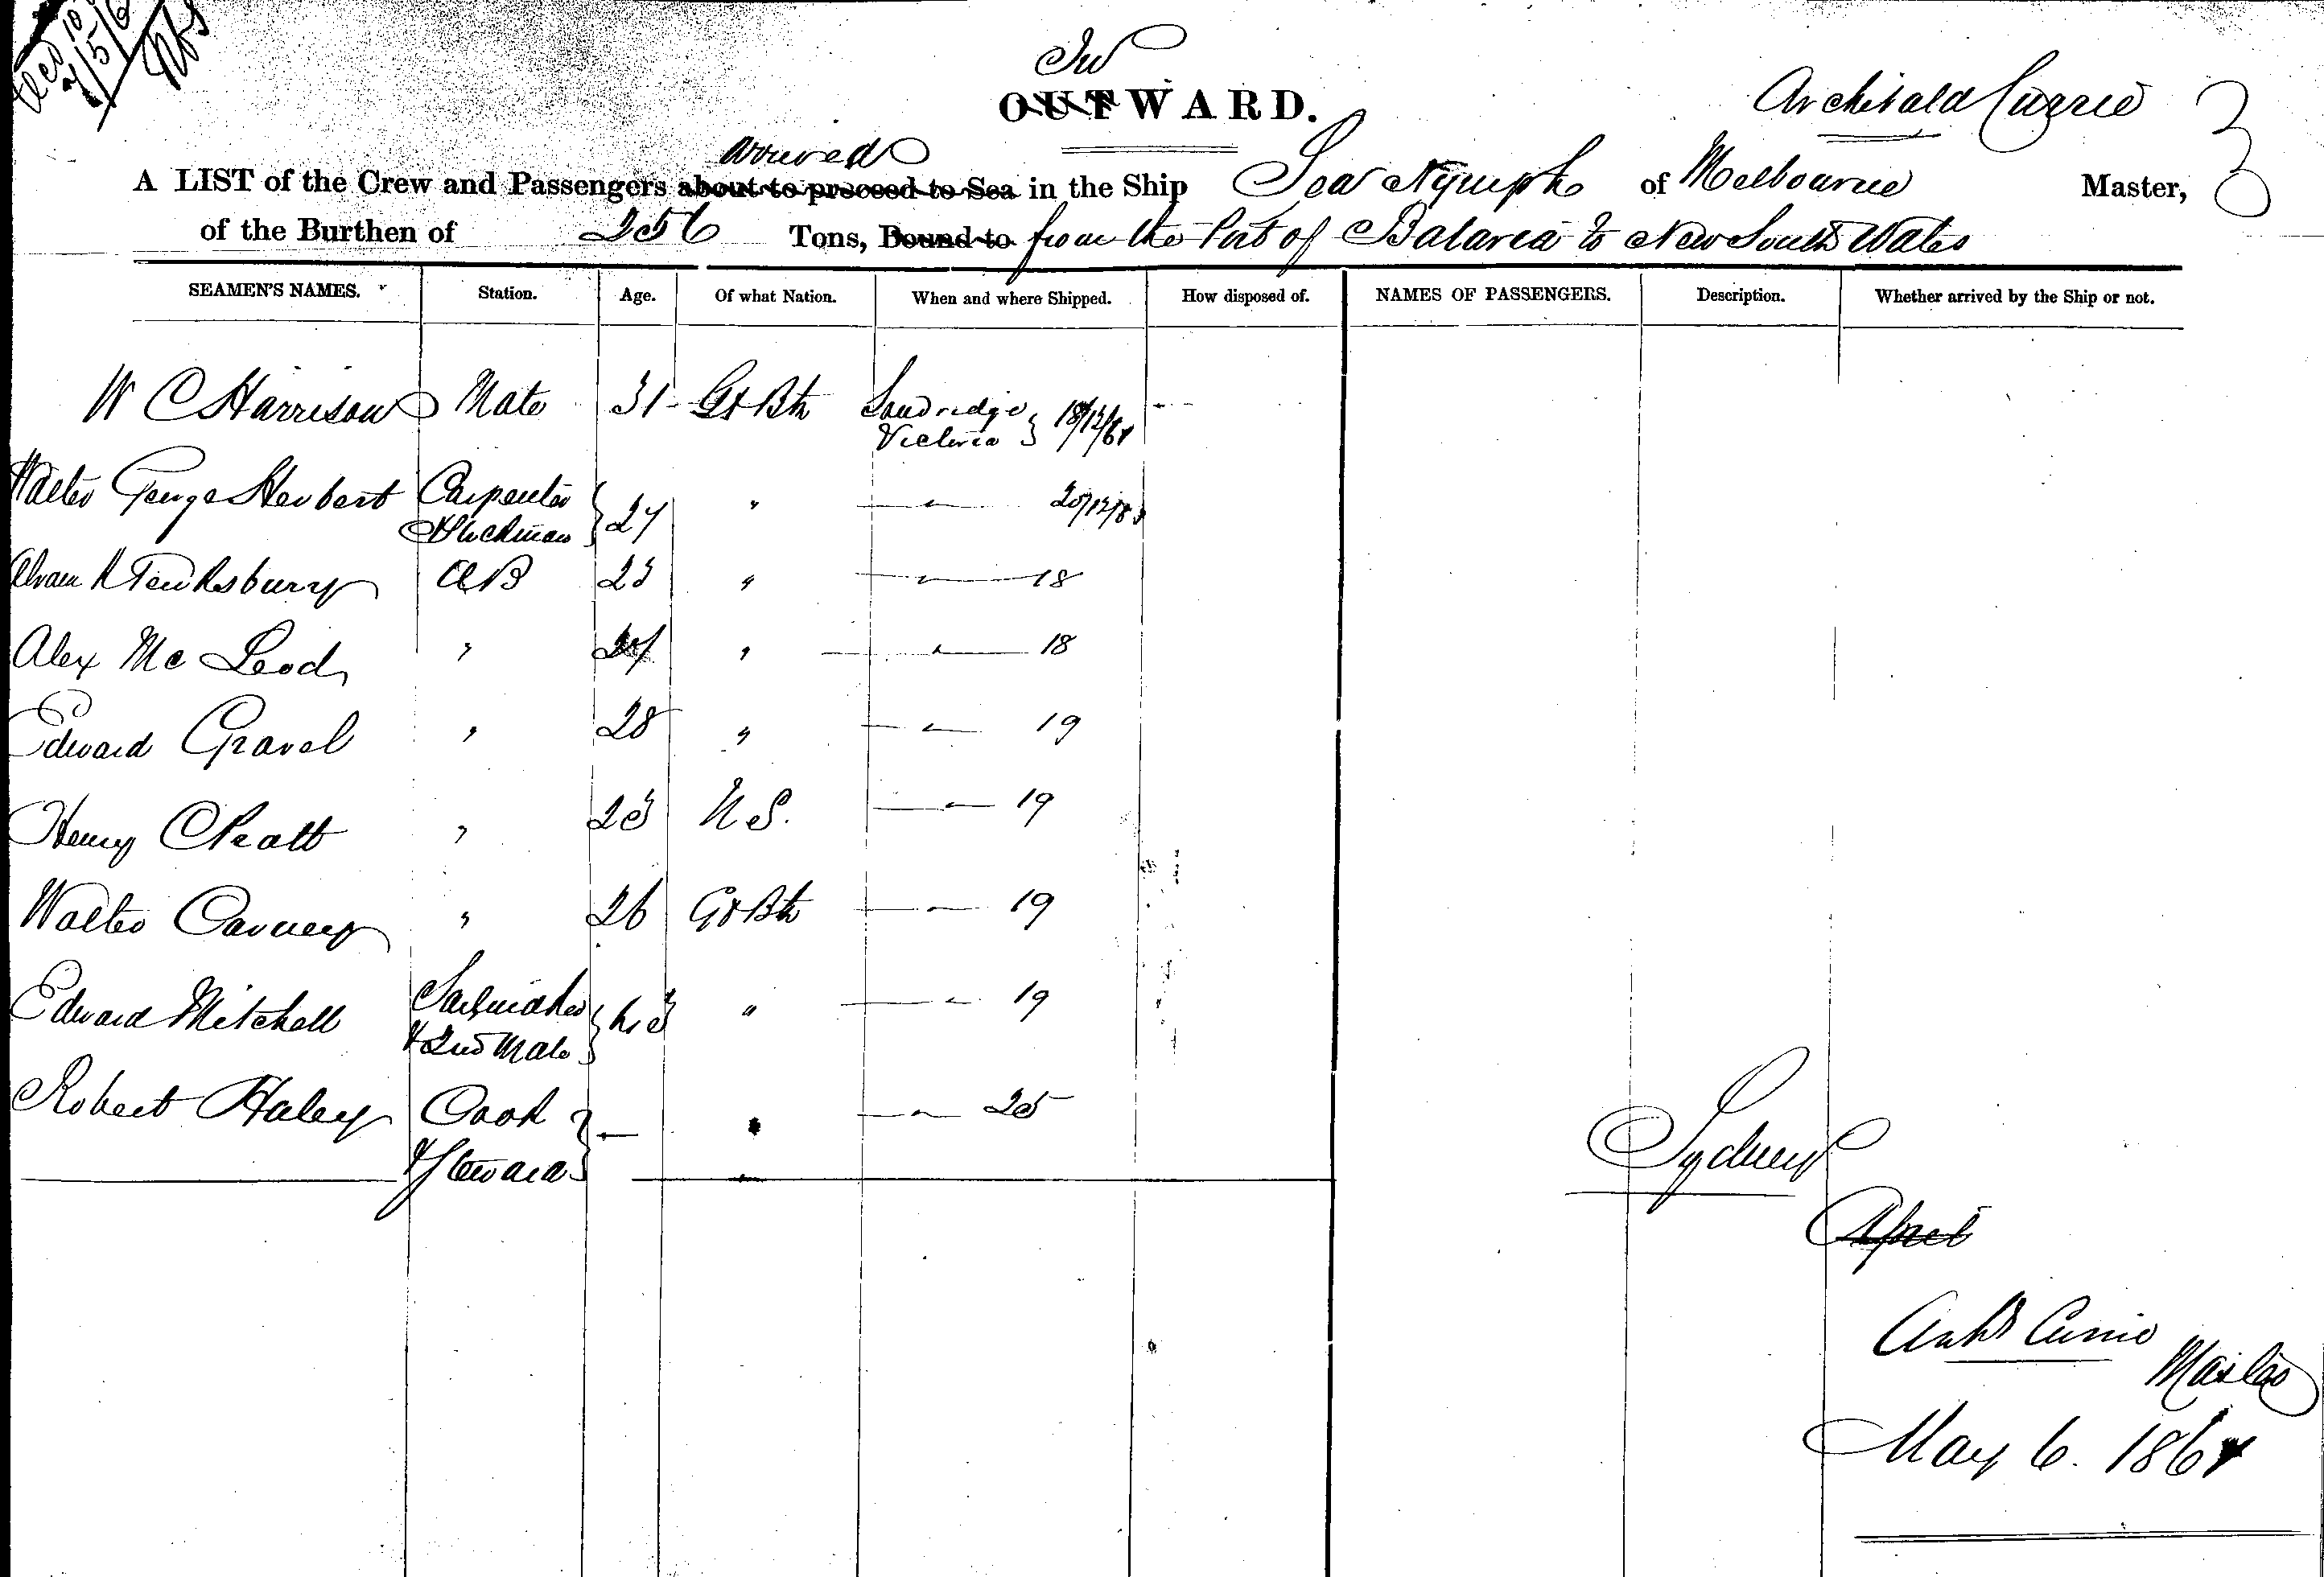 In
OUTWARD.
Archibald Currie
arrived
A LIST of the Crew and Passengers about to proceed to Sea in the Ship Sea Nymph of Melbourne Master,
of the Burthen of 256 Tons, Bound to from the Port of Batavia to New South Wales
SEAMEN'S NAMES. Station. Age. Of what Nation. When and where Shipped. How disposed of. NAMES OF PASSENGERS. Description. Whether arrived by the Ship or not.
W C Harrison Mate 31 Gt Btn Sandridge Victoria 18/12/
Walter George Herbert Carpenter 27 " " 20/12/
AB 23 " " 18
Alex Mc Leod " " " 18
Edward Gravel " 28 " " 19
Henry " 23 U S. " 19
Walter " 26 Gt Btn " 19
Edward Mitchell Sailmaker & 2nd Mate " " 19
Robert Haley Cook & Steward " " 25
Sydney
April
Archd Currie
Master
May 6. 186